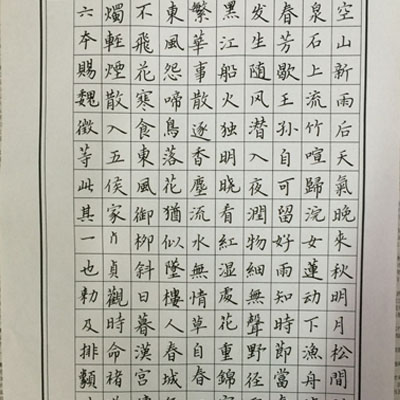 空山新雨后天氣晚來秋明月松間
泉石上流竹喧歸浣女蓮动下漁舟
春芳歇王孙自可留好雨知時節當
发生随风潜入夜潤物細無聲野径
黑江船火独明曉看紅湿處花重錦
繁華事散逐香塵流水無情草自春
東風怨啼鳥落花猶似墜樓人春城
不飛花寒食東風御柳斜日暮漢宮
燭輕煙散入五侯家貞觀時命褚
六本賜魏徵等此其一也勅及排類